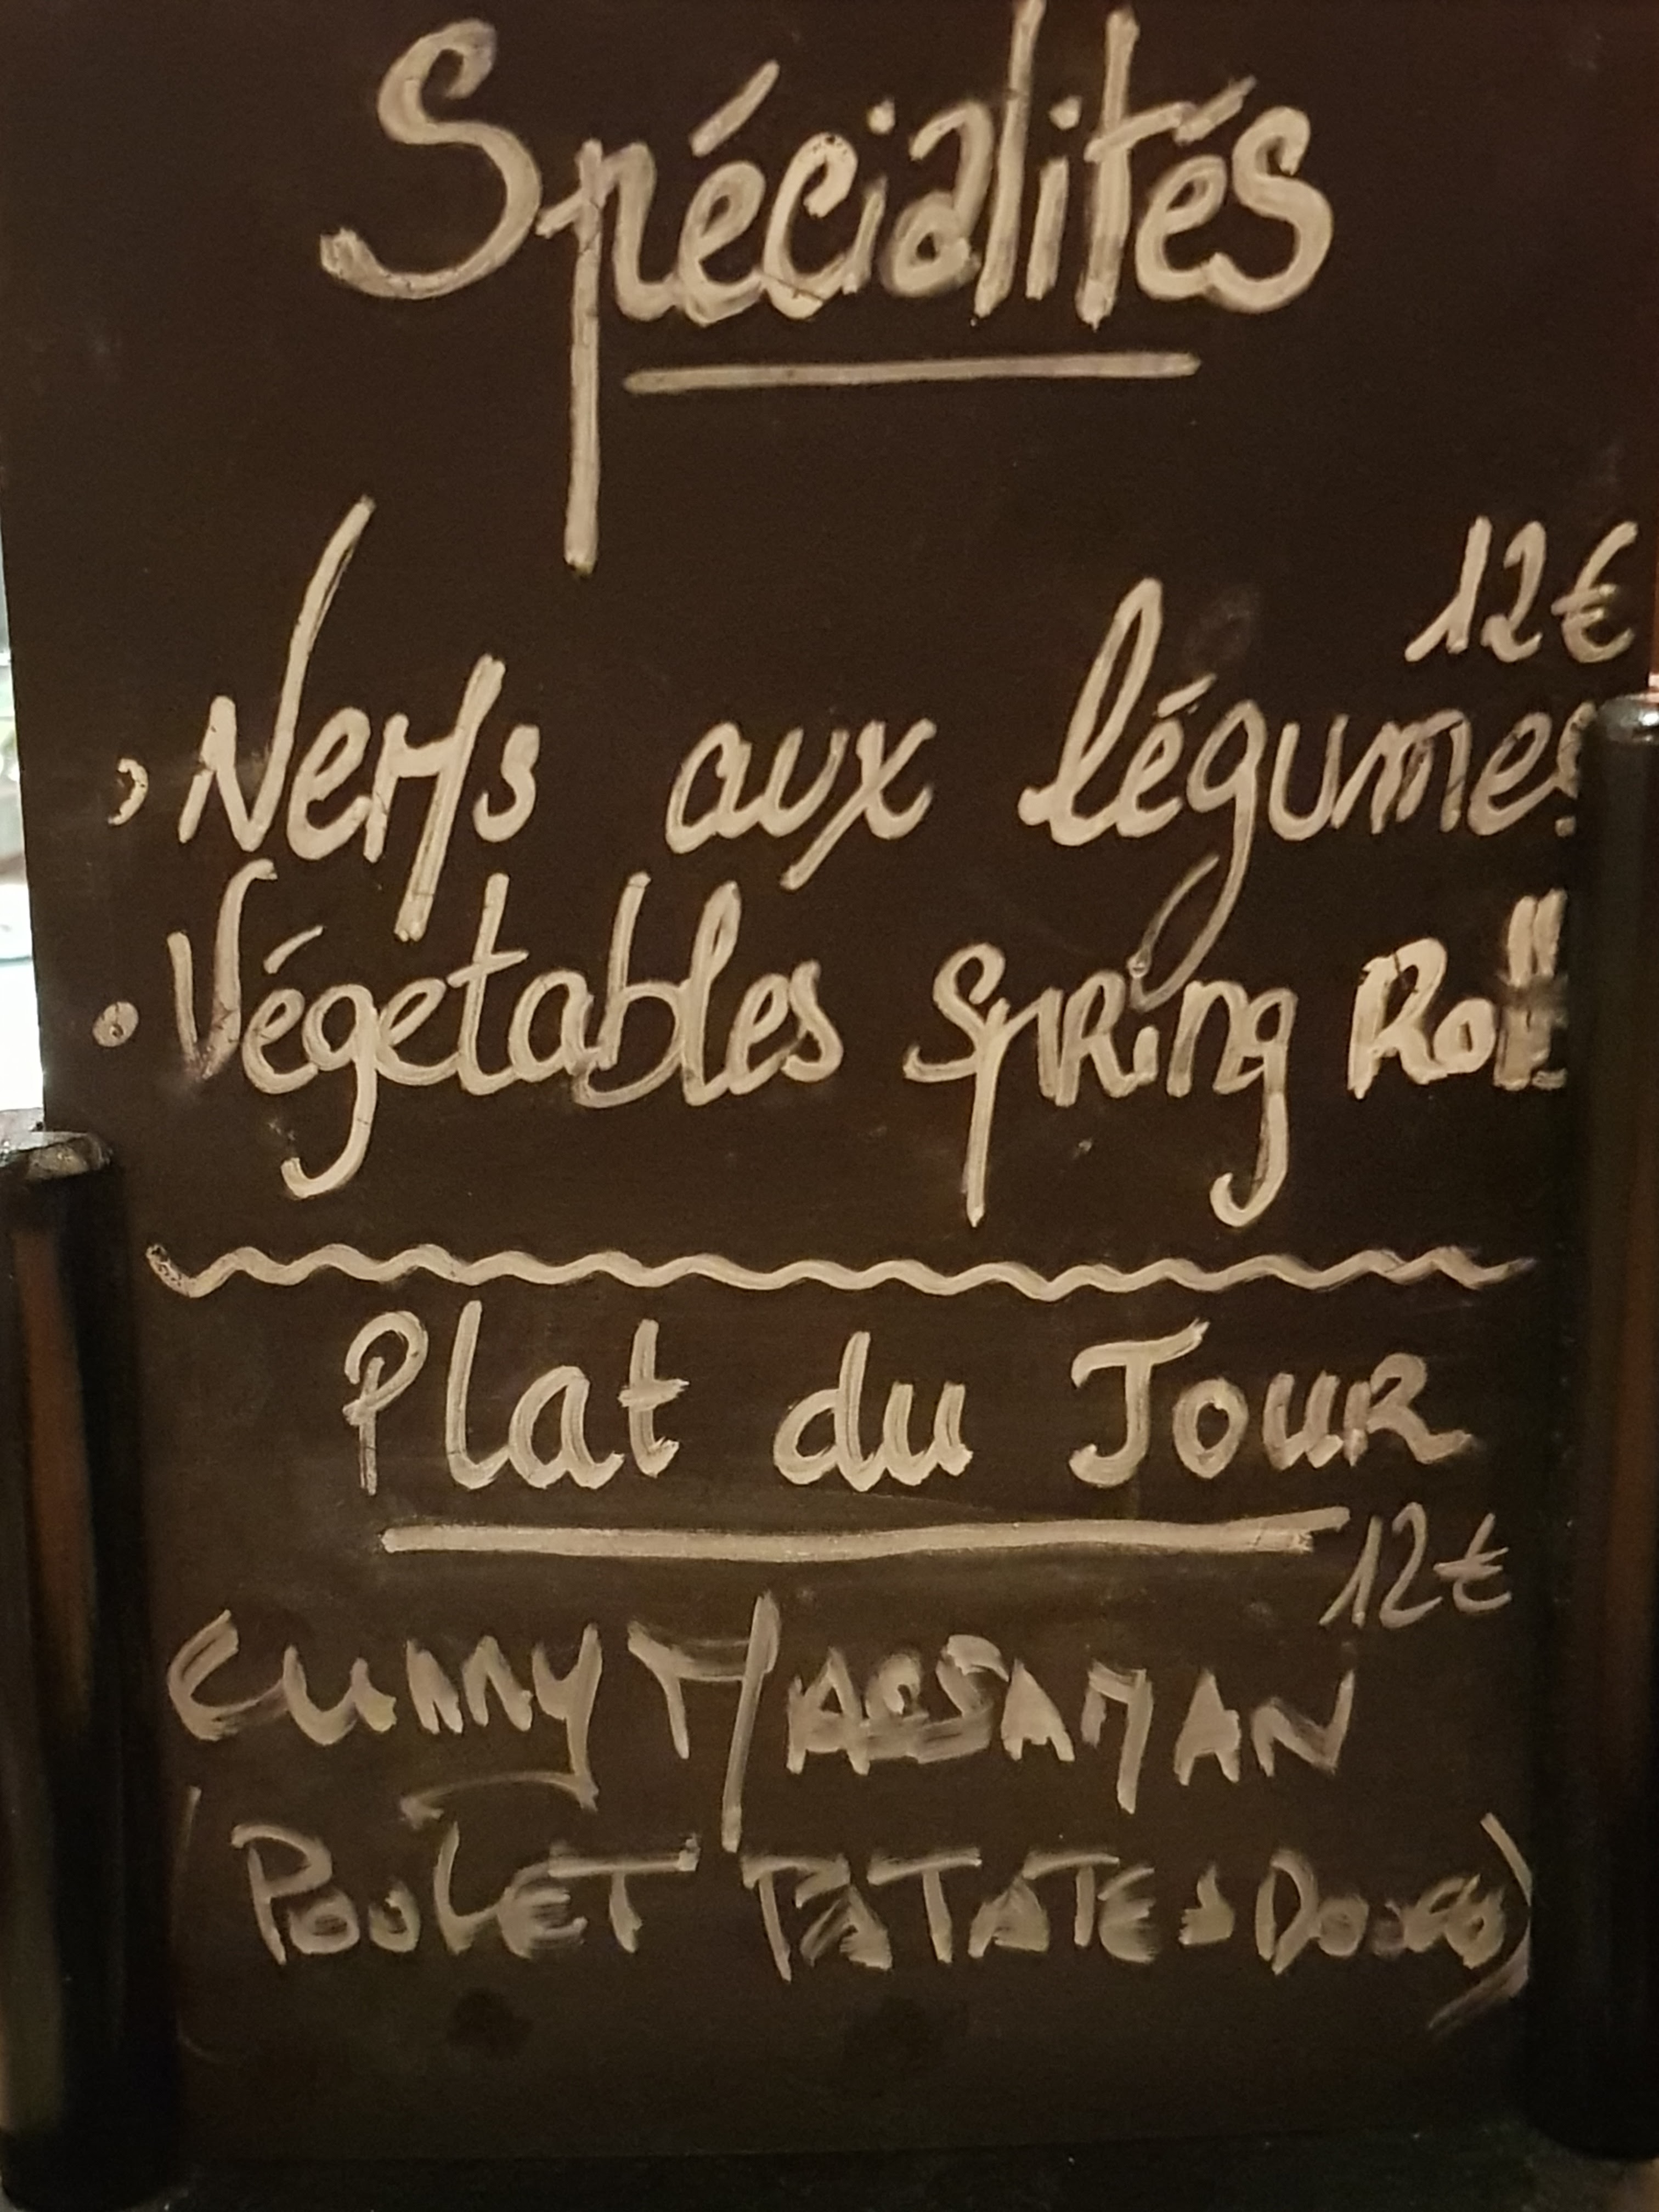 Spécialités
12€
• Nems aux légumes
• Végetables Spring Roll
Plat du Jour
12€
Curry Massaman
(Poulet Patates Douces)